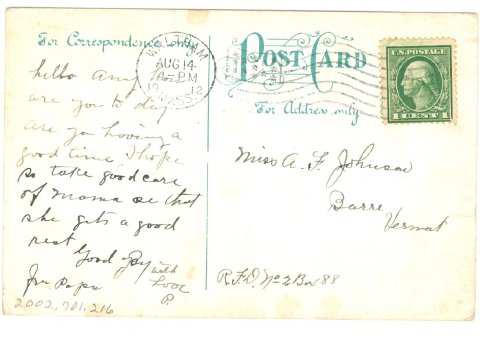 For Correspondence only
POST CARD
For Address only
WALTHAM
AUG 14
PM
1912
MASS
U.S. POSTAGE
1 CENT 1
hello Amy how
are you to day
are you having a
good time I hope
so take good care
of Mama se that
she gets a good
rest
Good By
with
Love
P.
from Papa
2002.701.216
Miss A. F. Johnson
Barre
Vermont
R.F.D. No 2 Box 88